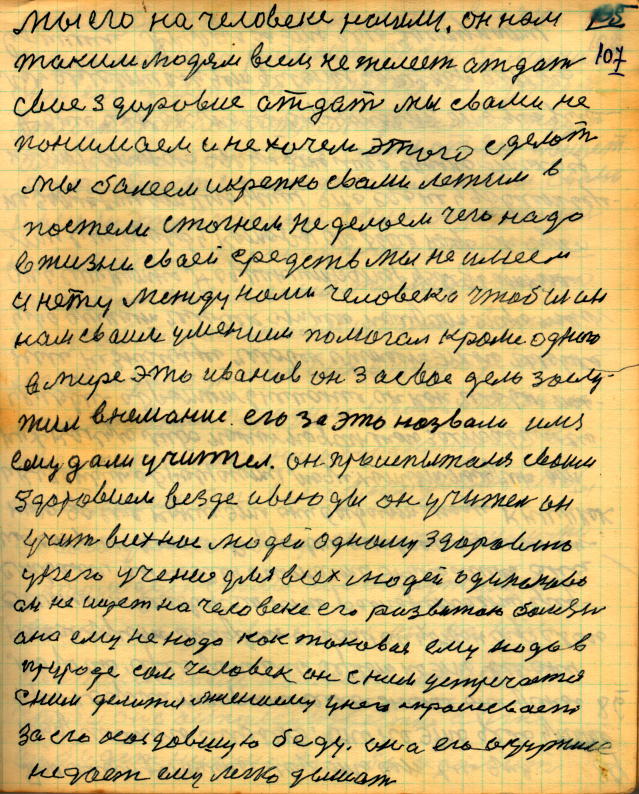 мы его на человеке нашли, он нам
107
таким людям всем не желает атдат
свое здоровие атдат мы свами не
понимаем и не хочем этого сделат
мы балеем и крепко свами лежим в
постели стогнем не делаем чего надо
в жизни своей средств мы не имеем
и нету между нами человека чтобы он
нам своим умением помогал кроме одного
в мире это иванов он за свое дело заслу-
жил внемание. его за это назвали имя
ему дали учител. он происпытался своим
здоровием везде и всюды он учител он
учит всех нас людей одному здоровию
у него учение для всех людей одинаково
он не ищет на человеке его развитою болезн
она ему не надо как таковая ему надо в
природе сам человек он сним устречается
сним делится у него спрашевает
за его беду. она его
не дает ему легко дышат